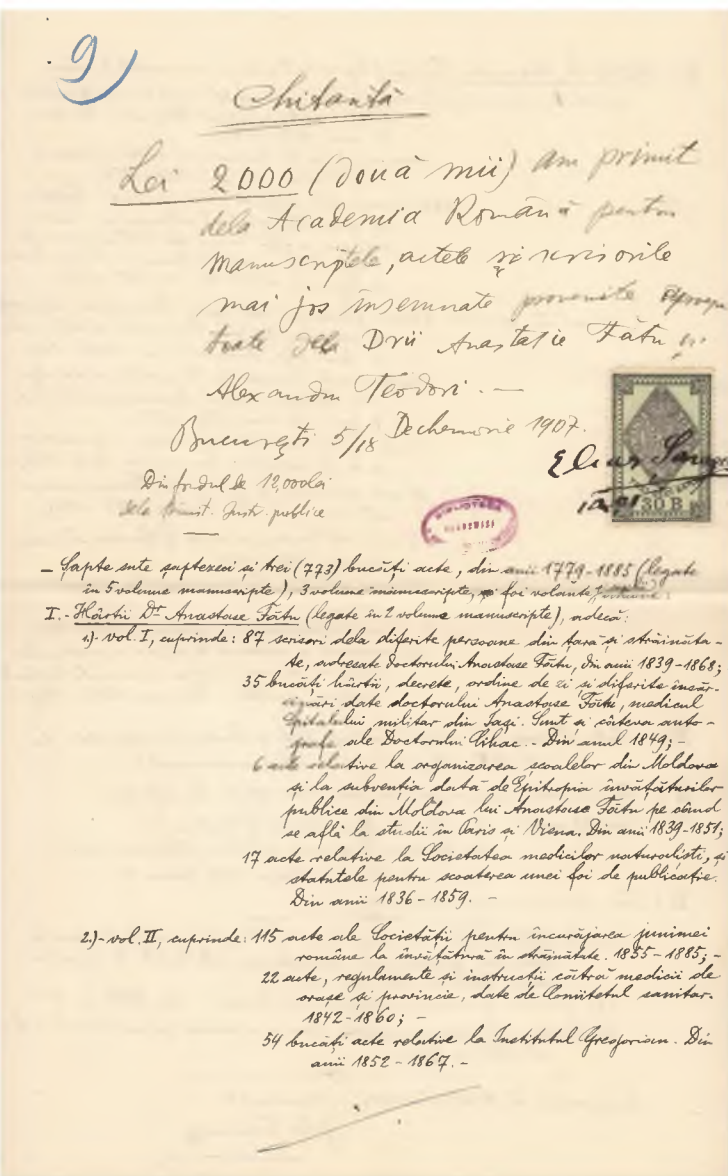 9
Chitanță
Lei 2000 (două mii) am primit
dela Academia Română pentru
manuscriptele, actele și scrisorile
mai jos însemnate provenite aproape
toate dela Drii Anastasie Fătu și
Alexandru Teodori. —
București 5/18 Dechemvrie 1907.
Din fondul de 12,000 lei
dela Minist. Instr. publice
BIBLIOTECA
30 B
— Șapte sute șaptezeci și trei (773) bucăți acte, din anii 1779-1885 (legate
în 5 volume manuscripte), 3 volume manuscripte, și foi volante,
I. - Hârtii Dr. Anastase Fătu (legate în 2 volume manuscripte), adecă:
1.)- vol. I, cuprinde: 87 scrisori dela diferite persoane din țară și străinăta-
te, adresate doctorului Anastase Fătu, din anii 1839-1868;
35 bucăți hârtii, decrete, ordine de zi și diferite însăr-
cinări date doctorului Anastase Fătu, medicul
spitalului militar din Iași. Sunt și câteva auto-
grafe ale Doctorului Cihac. - Din anul 1849; -
6 acte relative la organizarea școalelor din Moldova
și la subvenția dată de Epitropia învățăturilor
publice din Moldova lui Anastase Fătu pe când
se află la studii în Paris și Viena. Din anii 1839-1851;
17 acte relative la Societatea medicilor naturaliști, și
statutele pentru scoaterea unei foi de publicație.
Din anii 1836-1859. -
2.)- vol. II, cuprinde: 115 acte ale Societății pentru încurăjarea junimei
române la învățătură în străinătate. 1855-1885; -
22 acte, regulamente și instrucții cătră medicii de
orașe și provincie, date de Comitetul sanitar.
1842-1860; -
54 bucăți acte relative la Institutul Gregorian. Din
anii 1852-1867. -